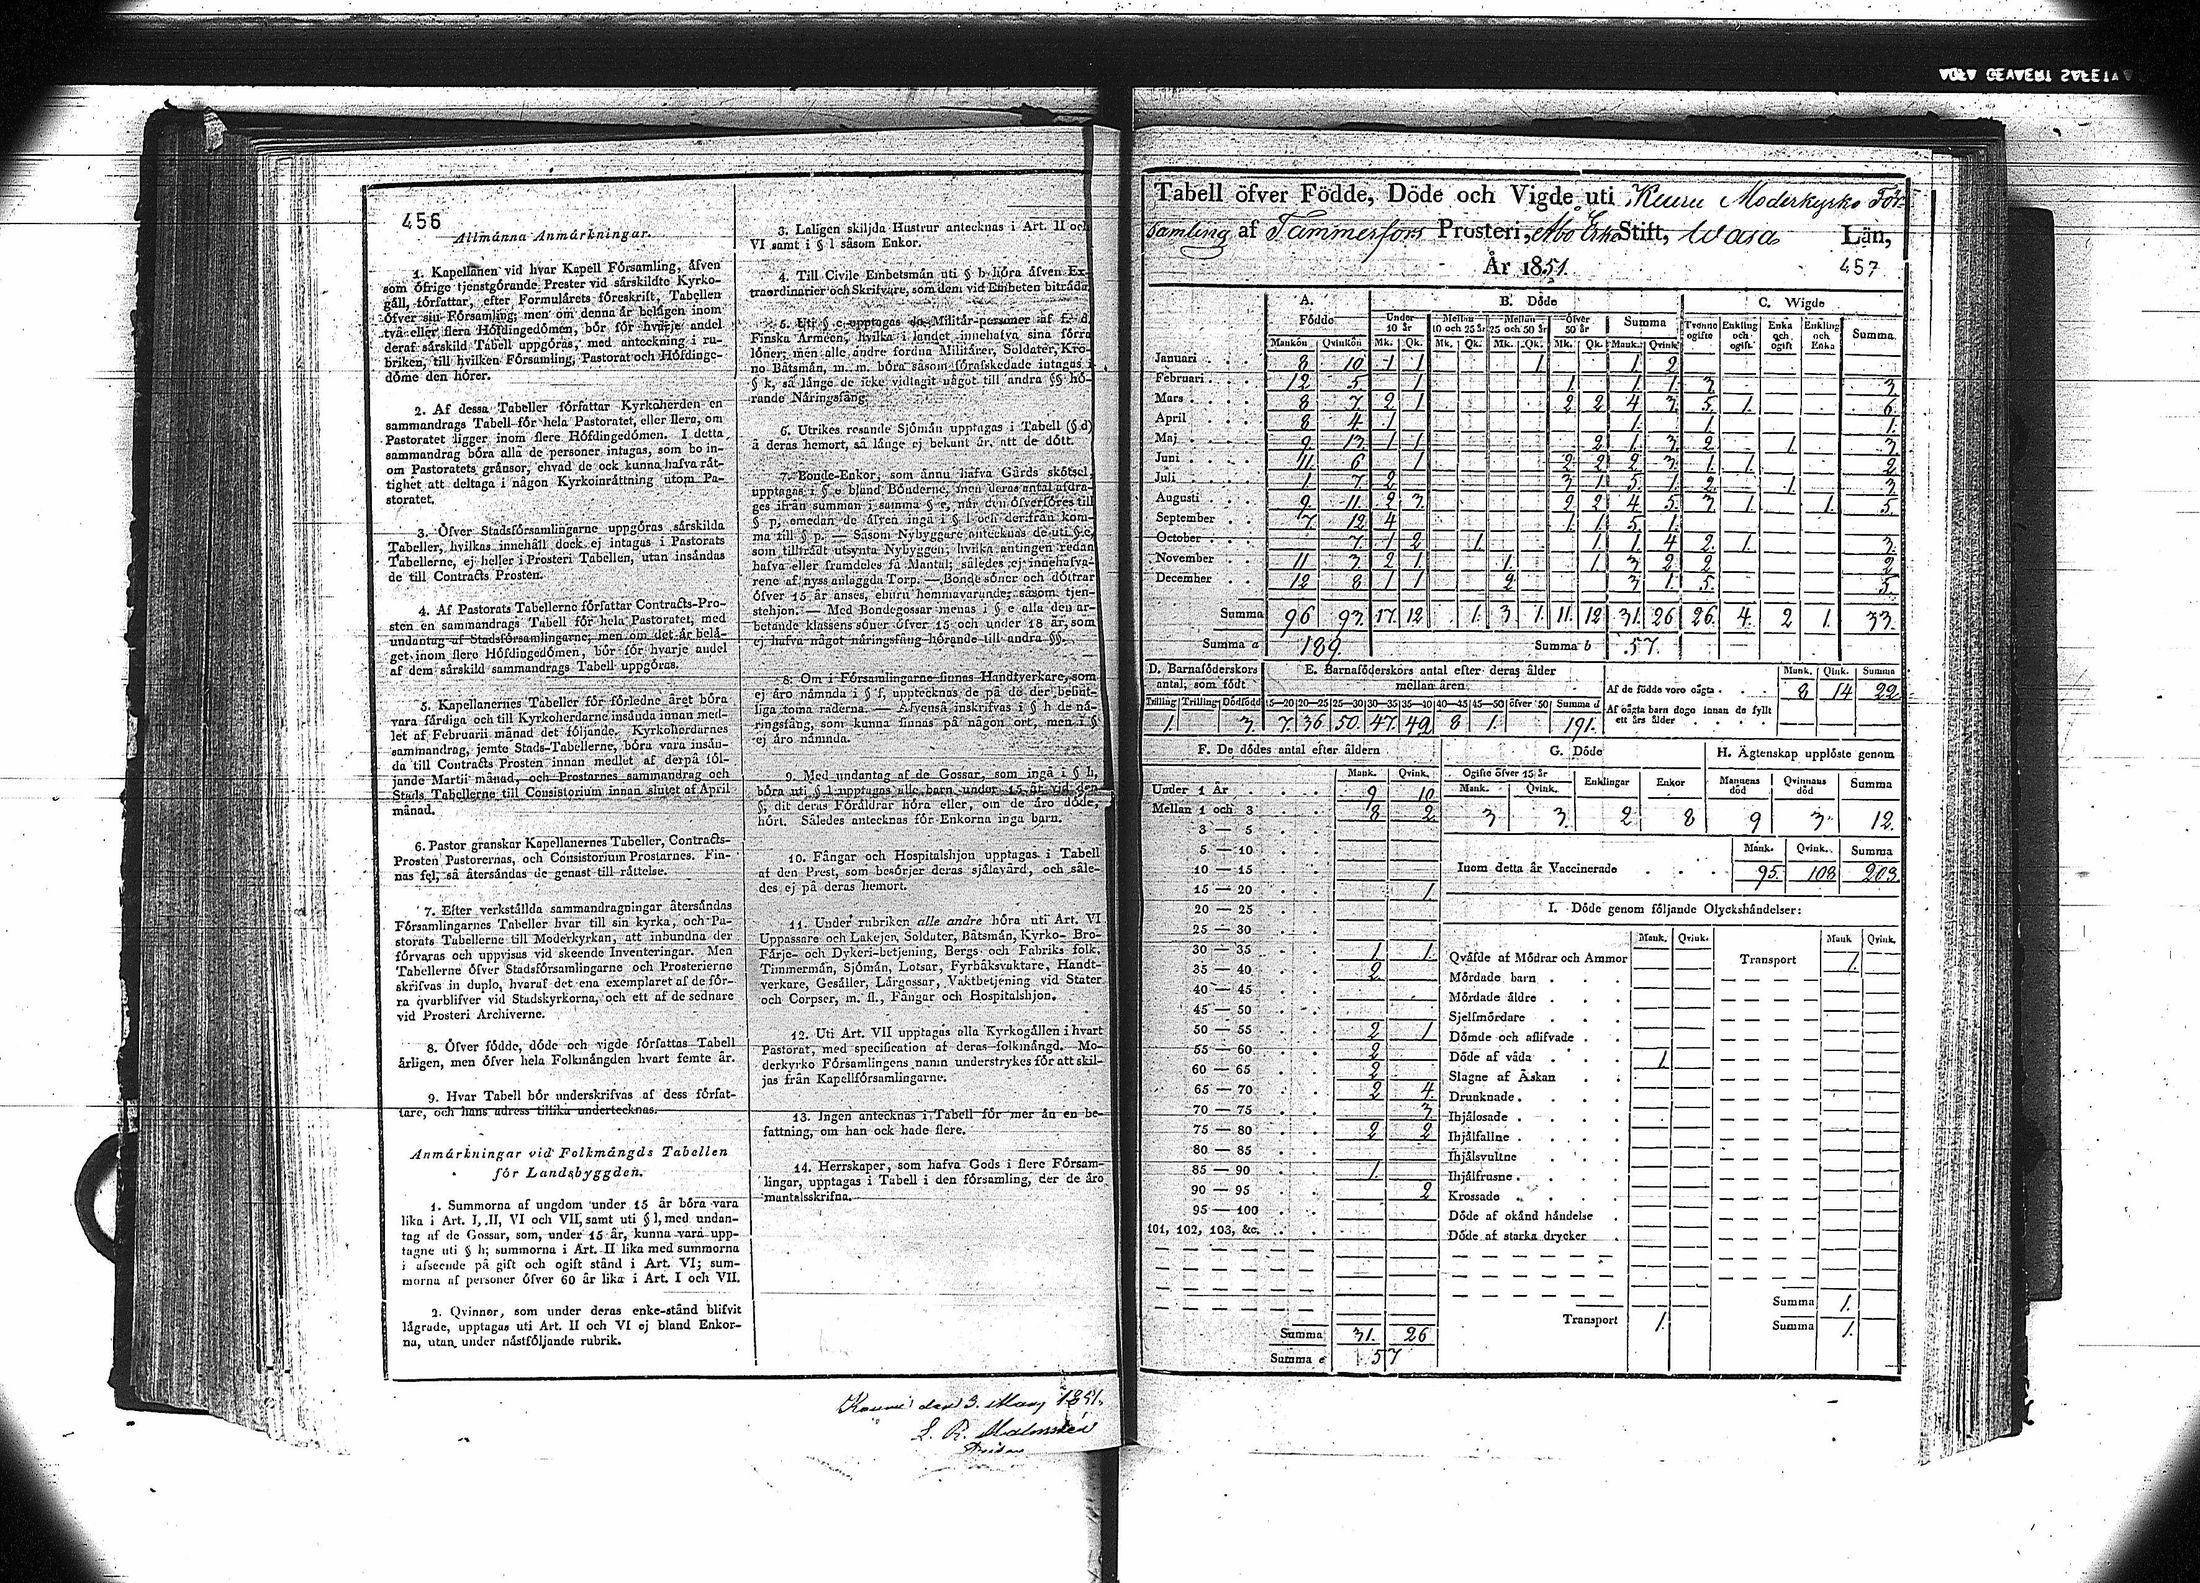 456
Allmänna Anmärkningar.
1. Kapellanen vid hvar Kapell Församling, äfven
som öfrige tjenstgörande Prester vid särskildte Kyrko-
gäll, författar, efter Formulärets föreskrift, Tabellen
öfver sin Församling; men om denna är belägen inom
två eller flera Höfdingedömen, bör för hvarje andel
deraf särskild Tabell uppgöras, med anteckning i ru-
briken, till hvilken Församling, Pastorat och Höfdinge-
döme den hörer.
2. Af dessa Tabeller författar Kyrkoherden en
sammandrags Tabell för hela Pastoratet, eller flera, om
Pastoratet ligger inom flere Höfdingedömen. I detta
sammandrag böra alla de personer intagas, som bo in-
om Pastoratets gränsor, ehvad de ock kunna hafva rät-
tighet att deltaga i någon Kyrkoinrättning utom Pa-
storatet.
3. Öfver Stadsförsamlingarne uppgöras särskilda
Tabeller, hvilkas innehåll dock ej intages i Pastorats
Tabellerne, ej heller i Prosteri Tabellen, utan insändas
de till Contracts Prosten.
4. Af Pastorats Tabellerne författar Contracts-Pro-
sten en sammandrags Tabell för hela Pastoratet, med
undantag af Stadsförsamlingarne; men om det är belä-
get inom flere Höfdingedömen, bör för hvarje andel
af dem särskild sammandrags Tabell uppgöras.
5. Kapellanernes Tabeller för förledne året böra
vara färdiga och till Kyrkoherdarne insända innan med-
let af Februarii månad det följande. Kyrkoherdarnes
sammandrag, jemte Stads-Tabellerne, böra vara insän-
da till Contracts Prosten innan medlet af derpå föl-
jande Martii månad, och Prostarnes sammandrag och
Stads Tabellerne till Consistorium innan slutet af April
månad.
6. Pastor granskar Kapellanernes Tabeller, Contracts-
Prosten Pastorernas, och Consistorium Prostarnes. Fin-
nas fel, så återsändas de genast till rättelse.
7. Efter verkställda sammandragningar återsändas
Församlingarnes Tabeller hvar till sin kyrka, och Pa-
storats Tabellerne till Moderkyrkan, att inbundna der
förvaras och uppvisas vid skeende Inventeringar. Men
Tabellerne öfver Stadsförsamlingarne och Prosterierne
skrifvas in duplo, hvaraf det ena exemplaret af de för-
ra qvarblifver vid Stadskyrkorna, och ett af de sednare
vid Prosteri Archiverne.
8. Öfver födde, döde och vigde författas Tabell
årligen, men öfver hela Folkmängden hvart femte år.
9. Hvar Tabell bör underskrifvas af dess författ-
tare, och hans adress tillika undertecknas.
Anmärkningar vid Folkmängds Tabellen
för Landsbyggden.
1. Summorna af ungdom under 15 år böra vara
lika i Art. I, II, VI och VII, samt uti § l, med undan-
tag af de Gossar, som, under 15 år, kunna vara upp-
tagne uti § h; summorna i Art. II lika med summorna
i afseende på gift och ogift stånd i Art. VI; sum-
morna af personer öfver 60 år lika i Art. I och VII.
2. Qvinnor, som under deras enke-stånd blifvit
lägrade, upptagas uti Art. II och VI ej bland Enkor-
na, utan under nästföljande rubrik.
3. Laligen skiljda Hustrur antecknas i Art. II och
VI samt i § l såsom Enkor.
4. Till Civile Embetsmän uti § b höra äfven Ex-
traordinarier och Skrifvare, som dem vid Embeten biträda.
5. Uti § c upptagas de Militär-personer af f. d.
Finska Arméen, hvilka i landet innehafva sina förra
löner; men alle andre fordna Militärer, Soldater, Kro-
no Båtsmän, m. m. böra såsom förafskedade intagas i
§ k, så länge de icke vidtagit något till andra §§ hö-
rande Näringsfång.
6. Utrikes resande Sjömän upptagas i Tabell (§ d)
å deras hemort, så länge ej bekant är, att de dött.
7. Bonde-Enkor, som ännu hafva Gårds skötsel,
upptagas i § e bland Bönderne, men deras antal afdra-
ges ifrån summan i samma § e, när den öfverföres till
§ p, emedan de äfven ingå i § l och derifrån kom-
ma till § p. — Såsom Nybyggare antecknas de uti § e,
som tillträdt utsynta Nybyggen, hvilka antingen redan
hafva eller framdeles få Mantal; således ej innehafva-
rene af nyss anlaggda Torp. — Bonde söner och döttrar
öfver 15 år anses, ehuru hemmavarande, såsom tjen-
stehjon. — Med Bondegossar menas i § e alla den ar-
betande klassens söner öfver 15 och under 18 år, som
ej hafva något näringsfång hörande till andra §§.
8. Om i Församlingarne finnas Handtverkare, som
ej äro nämnda i § f, upptecknas de på de der befint-
liga toma raderna. — Äfvenså inskrifvas i § h de nä-
ringsfång, som kunna finnas på någon ort, men i §
ej äro nämnda.
9. Med undantag af de Gossar, som ingå i § h,
böra uti § l upptagas alle barn under 15 år vid den
§, dit deras Föräldrar höra eller, om de äro döde,
hört. Således antecknas för Enkorna inga barn.
10. Fångar och Hospitalshjon upptagas i Tabell
af den Prest, som besörjer deras själavård, och såle-
des ej på deras hemort.
11. Under rubriken alle andre höra uti Art. VI
Uppassare och Lakejer, Soldater, Båtsmän, Kyrko- Bro-
Färje- och Dykeri-betjening, Bergs- och Fabriks folk,
Timmermän, Sjömän, Lotsar, Fyrbåksvaktare, Handt-
verkare, Gesäller, Lärgossar, Vaktbetjening vid Stater
och Corpser, m. fl., Fångar och Hospitalshjon.
12. Uti Art. VII upptagas alla Kyrkogällen i hvart
Pastorat, med specification af deras folkmängd. Mo-
derkyrko Församlingens namn understrykes för att skil-
jas från Kapellförsamlingarne.
13. Ingen antecknas i Tabell för mer än en be-
fattning, om han ock hade flere.
14. Herrskaper, som hafva Gods i flere Försam-
lingar, upptagas i Tabell i den församling, der de äro
mantalsskrifna.
den 3. 1851.
L. R. Malmstén
Tabell öfver Födde, Döde och Vigde uti Kuru Moderkyrko För-
samling af Tammerfors Prosteri, Åbo Erke Stift, Wasa Län,
År 1851. 457
A. Födde B. Döde C. Wigde
Under 10 år Mellan 10 och 25 år Mellan 25 och 50 år öfver 50 år Summa Tvenne ogifte Enkling och ogift Enka och ogift Enkling och Enka Summa
Mankön Qvinkön Mk. Qk. Mk. Qk. Mk. Qk. Mk. Qk. Mank. Qvink.
Januari 8 10 1 1 1 1. 2
Februari 12 5 1 1 1. 1. 3. 3.
Mars 8 7 2 1 2 2 4 3. 5. 1. 6.
April 8 4 1 1. 1. 1.
Maj 9 13 1 1 2 1. 3. 2 1 3.
Juni 11 6 1 2 2 2 3. 1. 1 2
Juli 1 7 2 3 1 5 1. 2. 1 3
Augusti 9 11. 2 3. 2 2 4 5. 3 1. 1. 5.
September 7 12 4 1 1 5. 1.
October 7. 1 2 1. 1 1. 4 2. 1. 3.
November 11 3 2 1 1. 1 3 2 2 2
December 12 8 1 1 2 3 1. 5. 5.
Summa 96 93 17. 12 1. 3 1. 11. 12 31. 26 26. 4. 2 1. 33.
Summa a 189. Summa b 57.
D. Barnaföderskors antal, som födt
E. Barnaföderskors antal efter deras ålder mellan åren
Mank. Qink. Summa
Af de födde voro oägta 8 14 22
Af oägta barn dogo innan de fyllt ett års ålder
Trilling Trilling Dödfödd 15—20 20—25 25—30 30—35 35—40 40—45 45—50 öfver 50 Summa d
1. 3. 7. 36 50. 47. 49. 8 1. 191.
F. De dödes antal efter åldern
Mank. Qvink.
Under 1 År 9 10
Mellan 1 och 3 8 2
3 — 5
5 — 10
10 — 15
15 — 20 1.
20 — 25
25 — 30
30 — 35 1 1.
35 — 40 2
40 — 45
45 — 50
50 — 55 2 1
55 — 60 2
60 — 65 2
65 — 70 2 4.
70 — 75 3.
75 — 80 2 2
80 — 85
85 — 90 1.
90 — 95 2
95 — 100
101, 102, 103, &c.
Summa 31. 26
Summa e 57
G. Döde
Ogifte öfver 15 år Enklingar Enkor
Mank. Qvink.
3 3. 2 8
H. Ägtenskap upplöste genom
Mannens död Qvinnans död Summa
9 3 12.
Mank. Qvink. Summa
Inom detta år Vaccinerade 95. 108 203.
I. Döde genom följande Olyckshändelser:
Mank. Qvink. Mank Qvink.
Qväfde af Mödrar och Ammor Transport 1.
Mördade barn
Mördade äldre
Sjelfmördare
Dömde och aflifvade
Döde af våda 1.
Slagne af Åskan
Drunknade
Ihjälosade
Ihjälfallne
Ihjälsvultne
Ihjälfrusne
Krossade
Döde af okänd händelse
Döde af starka drycker
Summa 1.
Transport 1. Summa 1.